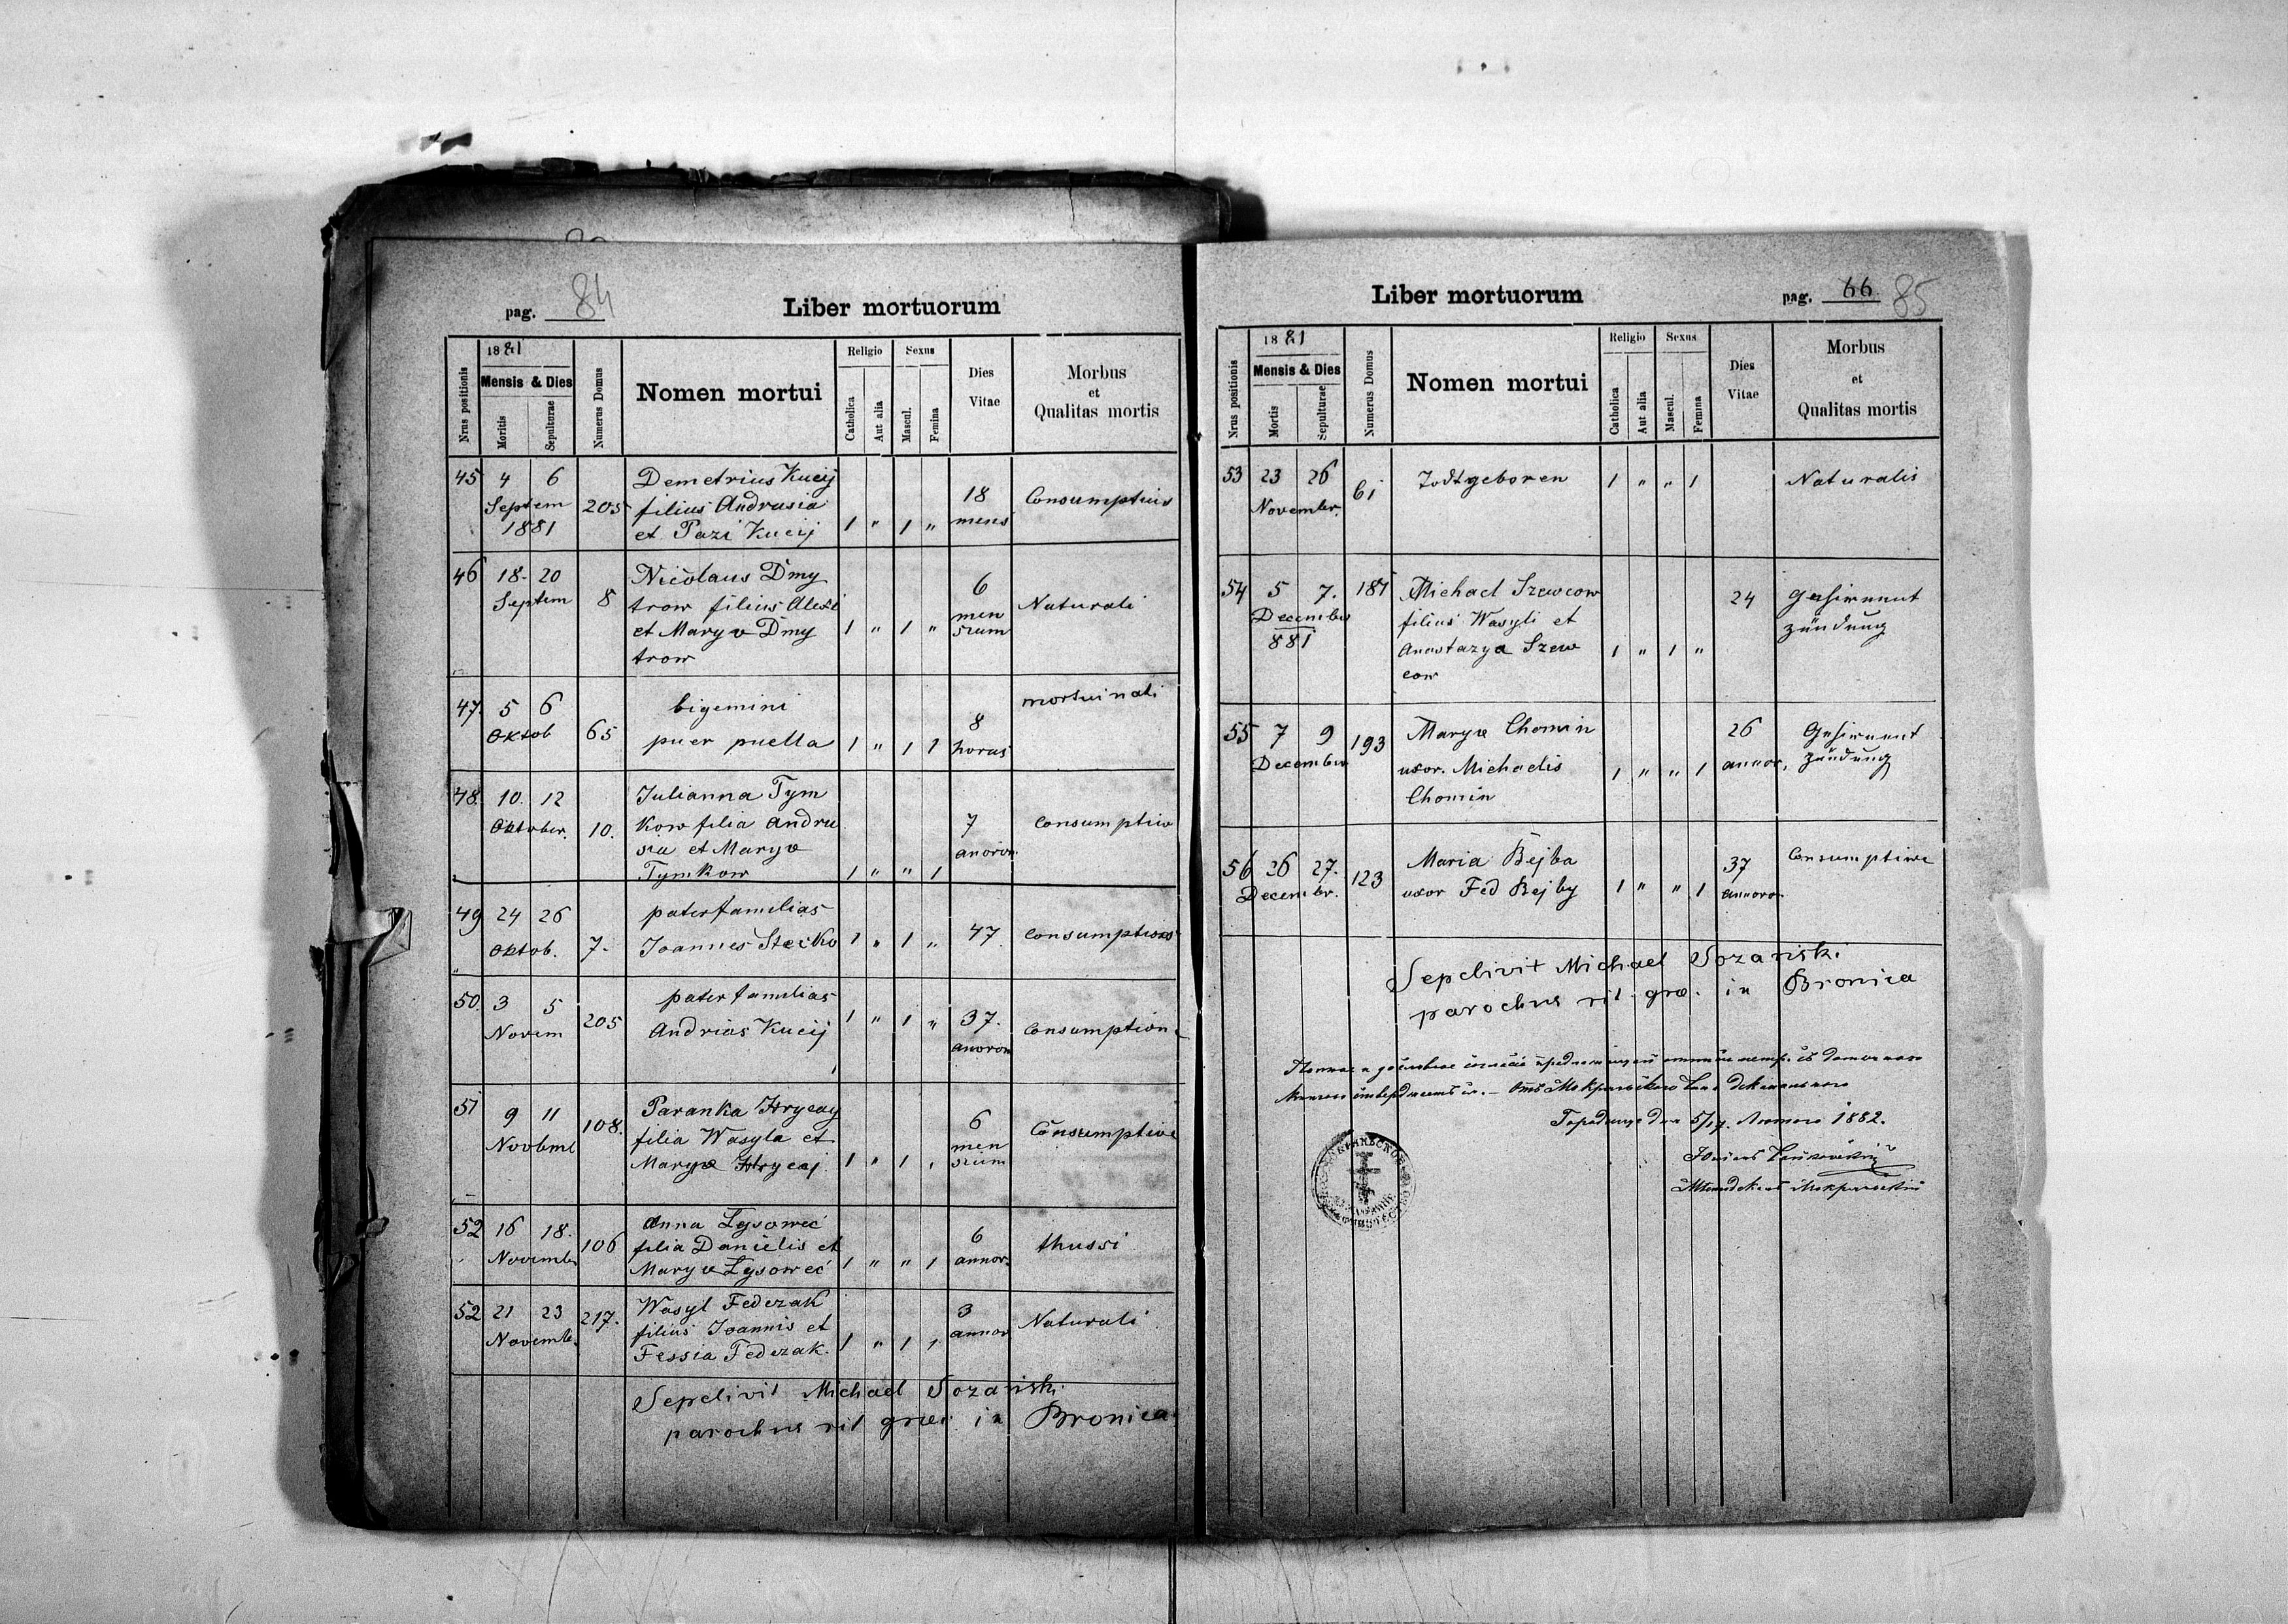 pag. 84
Liber mortuorum
Nrus positionis
1881
Mensis & Dies
Moritis
Sepulturae
Numerus Domus
Nomen mortui
Religio
Catholica
Aut alia
Sexus
Mascul.
Femina
Dies
Vitae
Morbus
et
Qualitas mortis
45 4 6 Septem 1881 205
Demetrius Kucij
filius Andrusia
et Pazi Kucij
1 " 1 "
18
mens
Consumptuis
46 18. 20 Septem 8
Nicolaus Dmy
trow filius Alexi
et Marya Dmy
trow
1 " 1 "
6
men
sium
Naturali
47. 5 6 Oktob 65
bigemini
puer puella
1 " 1 1
8
horas
mortui nati
48. 10. 12 Oktober. 10.
Julianna Tym
kow filia Andru
sia et Marya
Tymkow
1 " " 1
7
anoron
Consumptiw
49 24 26 Oktob. 7.
paterfamilias
Joannes Stecko
1 " 1 "
47
consumptions
50. 3 5 Novem 205
paterfamilias
Andrias Kucij
1 " 1 "
37.
anoron
Consumption
51 9 11 108.
Paranka Hrycaj
filia Wasyla et
Marya Hrycaj
1 " 1
6
men
sium
Consumptive
52 16 18. Novemb. 106
Anna Lysoweć
filia Danielis et
Marya Lysoweć
1 " " 1
6
annor.
thussi
52 21 23 Novemb. 217.
Wasyl Fedczak
filius Joannis et
Fessia Fedczak.
1 " 1
3
annor
Naturali
Sepelivit Michael Sozański
parochus rit graec in Bronica
Liber mortuorum
pag. 66 85
Nrus positionis
1881
Mensis & Dies
Mortis
Sepulturae
Numerus Domus
Nomen mortui
Religio
Catholica
Aut alia
Sexus
Mascul.
Femina
Dies
Vitae
Morbus
et
Qualitas mortis
53 23 26 Novembr. 61
Todtgeboren
1 " " 1
Naturalis
54 5 7. December 881 187
Michael Szewcow
filius Wasyli et
Anastazya Szew
cow
1 " 1 "
24
Gehirnent
zündung
55 7 9 December 193
Marya Chomin
uxor. Michaelis
Chomin
1 " " 1
26
annor.
Gehirnent
zündung
56 26 27. Decembr. 123
Maria Bejba
uxor Fed Bejby
1 " " 1
37
annoro
Consumptive
Sepelivit Michael Sozański
parochus rit. grae. in Bronica
1882.